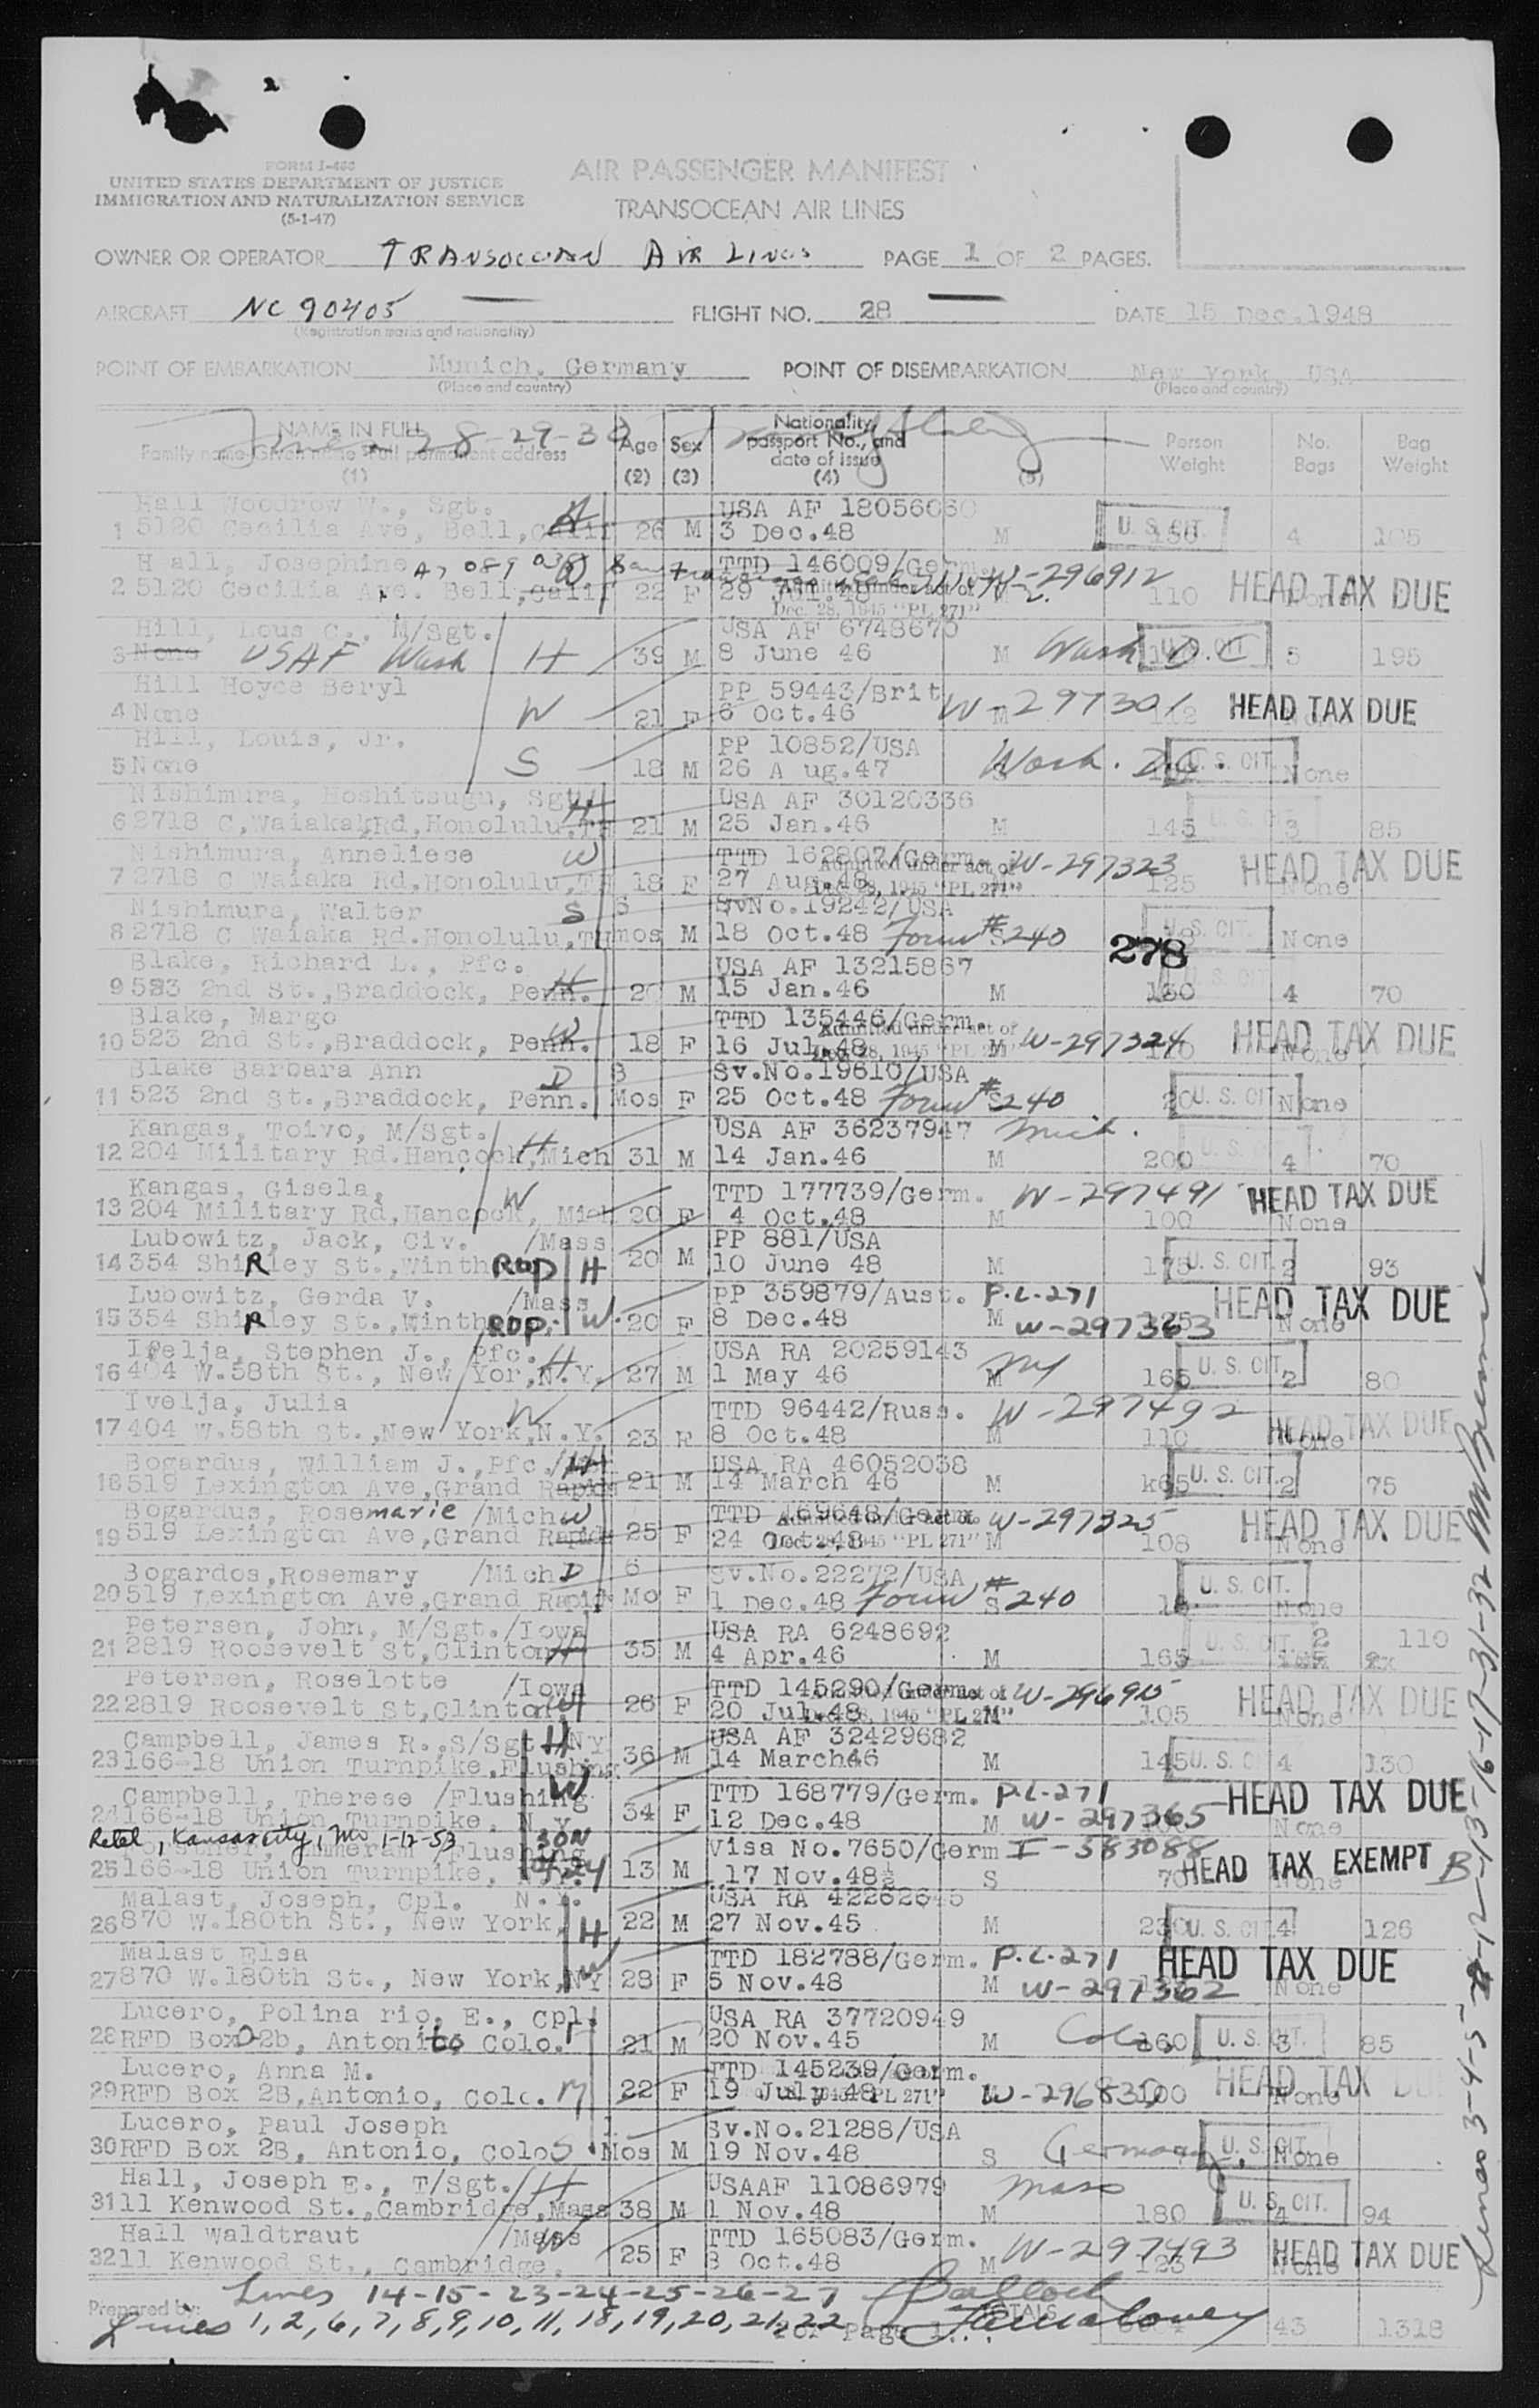 FORM I-466
UNITED STATES DEPARTMENT OF JUSTICE
IMMIGRATION AND NATURALIZATION SERVICE
(5-1-47)
AIR PASSENGER MANIFEST
TRANSOCEAN AIR LINES
OWNER OR OPERATOR TRANSOCEAN AIR LINES PAGE 1 OF 2 PAGES.
AIRCRAFT NC 90405 FLIGHT NO. 28 DATE 15 Dec. 1948
(Registration marks and nationality)
POINT OF EMBARKATION Munich, Germany POINT OF DISEMBARKATION New York USA
(Place and country) (Place and country)
NAME IN FULL Age Sex Nationality, passport No., and date of issue Person Weight No. Bags Bag Weight
Family name Given name Full permanent address
(1) (2) (3) (4) (5)
28-29-30
Hall Woodrow W., Sgt. USA AF 18056060 U. S. CIT.
1 5120 Cecilia Ave, Bell, Calif 26 M 3 Dec.48 M 150 4 105
H all, Josephine TTD 146009/Germ. W-296912 HEAD TAX DUE
2 5120 Cecilia Ave. Bell, Calif 22 F 29 Jul.48 110 None
Admitted under act of Dec. 28, 1945 "PL 271"
Hill, Lous C., M/Sgt. USA AF 6748670
3 None USAF Wash H 39 M 8 June 46 M Wash D C U. S. CIT. 5 195
Hill Hoyce Beryl PP 59443/Brit W-297301 HEAD TAX DUE
4 None W 21 F 6 Oct.46 M 112
Hill, Louis, Jr. PP 10852/USA
5 None S 18 M 26 A ug.47 Wash. D.C. U. S. CIT. None
Nishimura, Hoshitsugu, Sgt/ H USA AF 30120336
6 2718 C, Waiaka Rd, Honolulu, TH 21 M 25 Jan.46 M 145 U. S. CIT. 3 85
Nishimura, Anneliese W TTD 162807/Germ. W-297323 HEAD TAX DUE
7 2718 C Waiaka Rd, Honolulu, TH 18 F 27 Aug.48 125 None
Admitted under act of Dec. 28, 1945 "PL 271"
Nishimura, Walter S 6 SvNo.19242/USA U. S. CIT.
8 2718 C Waiaka Rd. Honolulu, TH mos M 18 Oct.48 Form # 240 S None
278
Blake, Richard L., Pfc. H USA AF 13215867 U. S. CIT.
9 583 2nd St., Braddock, Penn. 20 M 15 Jan.46 M 160 4 70
Blake, Margo W TTD 135446/Germ. HEAD TAX DUE
10 523 2nd St., Braddock, Penn. 18 F 16 Jul.48 M W-297324 None
Admitted under act of Dec. 28, 1945 "PL 271"
Blake Barbara Ann D 3 Sv.No.19610/USA
11 523 2nd St., Braddock, Penn. Mos F 25 Oct.48 Form # 240 S 20 U. S. CIT. None
Kangas, Toivo, M/Sgt. H USA AF 36237947 Mich.
12 204 Military Rd. Hancock, Mich 31 M 14 Jan.46 M 200 U. S. CIT. 4 70
Kangas, Gisela, W TTD 177739/Germ. W-297491 HEAD TAX DUE
13 204 Military Rd, Hancock, Mich 20 F 4 Oct.48 M 100 None
Lubowitz, Jack, Civ. /Mass PP 881/USA
14 354 ShiRley St., Winth ROP H 20 M 10 June 48 M 175 U. S. CIT. 2 93
Lubowitz, Gerda V. /Mass PP 359879/Aust. P.L-271 HEAD TAX DUE
15 354 ShiRley St., Winth ROP. W. 20 F 8 Dec.48 M W-297363 125 None
Ivelja, Stephen J., Pfc. H USA RA 20259143 NY
16 404 W.58th St., New Yor, N.Y. 27 M 1 May 46 M 165 U. S. CIT. 2 80
Ivelja, Julia W TTD 96442/Russ. W-297492 HEAD TAX DUE
17 404 W.58th St., New York, N.Y. 23 F 8 Oct.48 M 110 None
Bogardus, William J., Pfc. H USA RA 46052038
18 519 Lexington Ave, Grand Rapids 21 M 14 March 46 M k65 U. S. CIT. 2 75
Bogardus, Rosemarie /Mich W TTD 169648/Germ. W-297325 HEAD TAX DUE
19 519 Lexington Ave, Grand Rapids 25 F 24 Oct.48 M 108 None
Admitted under act of Dec. 28, 1945 "PL 271"
Bogardos, Rosemary /Mich D 6 Sv.No.22272/USA U. S. CIT.
20 519 Lexington Ave, Grand Rapids Mo F 1 Dec.48 Form # 240 S None
Petersen, John, M/Sgt./Iowa USA RA 6248692 U. S. CIT. 2 110
21 2819 Roosevelt St, Clinton H 35 M 4 Apr.46 M 165
Petersen, Roselotte /Iowa TTD 145290/Germ. W-296915 HEAD TAX DUE
22 2819 Roosevelt St, Clinton W 26 F 20 Jul.48 M 105 None
Admitted under act of Dec. 28, 1945 "PL 271"
Campbell, James R., S/Sgt H NY USA AF 32429682
23 166-18 Union Turnpike, Flushing 36 M 14 March46 M 145 U. S. CIT. 4 130
Campbell, Therese /Flushing W TTD 168779/Germ. P.L-271 HEAD TAX DUE
24 166-18 Union Turnpike, N.Y. 34 F 12 Dec.48 M W-297365 None
Retel, Kansas City, Mo. 1-12-53
Flushing SON Visa No.7650/Germ I-583088 HEAD TAX EXEMPT B
25 166-18 Union Turnpike, N.Y. 13 M 17 Nov.48 S 70 None
Malast, Joseph, Cpl. N.Y. USA RA 42262645
26 870 W.180th St., New York, H 22 M 27 Nov.45 M 230 U. S. CIT. 4 126
Malast Elsa W TTD 182788/Germ. P.L-271 HEAD TAX DUE
27 870 W.180th St., New York, NY 28 F 5 Nov.48 M W-297362 None
Lucero, Polina rio, E., Cpl. USA RA 37720949
28 RFD Box 2b, Antonito Colo. F 21 M 20 Nov.45 M Colo. 160 U. S. CIT. 3 85
Lucero, Anna M. TTD 145239/Germ. HEAD TAX DUE
29 RFD Box 2B, Antonio, Colo. M 22 F 19 July 48 W-296830 100 None
1945 "PL 271"
Lucero, Paul Joseph Sv.No.21288/USA
30 RFD Box 2B, Antonio, Colo S Mos M 19 Nov.48 S Germany U. S. CIT. None
Hall, Joseph E., T/Sgt. H USAAF 11086979 Mass
31 11 Kenwood St., Cambridge, Mass 38 M 1 Nov.48 M 180 U. S. CIT. 4 94
Hall Waldtraut /Mass W TTD 165083/Germ. W-297493 HEAD TAX DUE
32 11 Kenwood St., Cambridge, 25 F 8 Oct.48 M 123 None
Lines 14-15-23-24-25-26-27
Prepared by:
Lines 1, 2, 6, 7, 8, 9, 10, 11, 18, 19, 20, 21, 22 for Page 1... TOTALS 43 1318
Lines 3-4-5-12-13-16-17-31-32